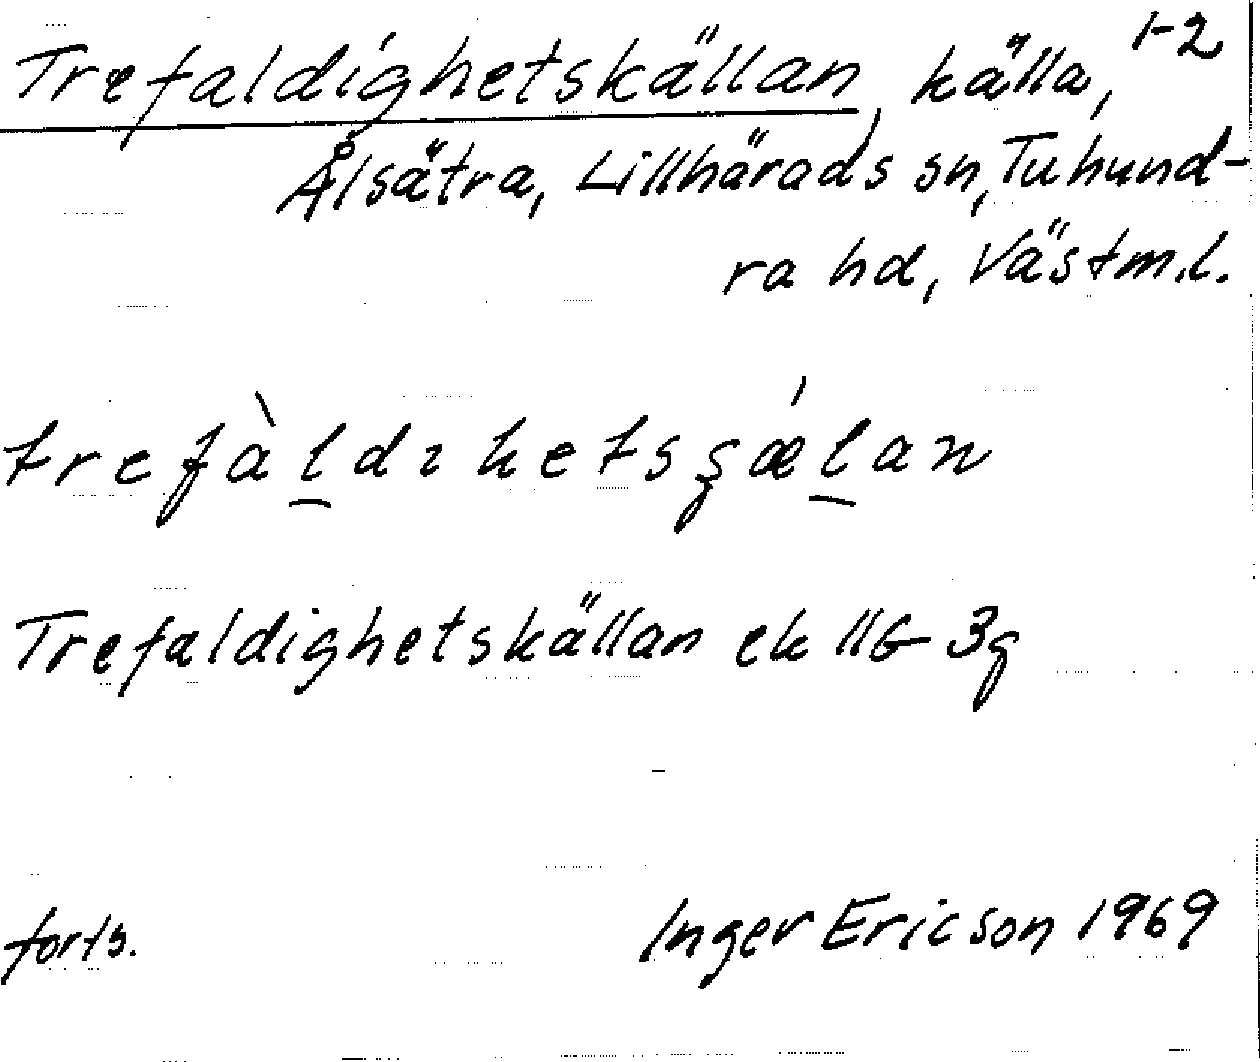 Trefaldighetskällan, källa, 1-2
Ålsätra, Lillhärads sn, Tuhund-
ra hd, Västm.l.
trefàldıhetsşǽlan
Trefaldighetskällan ek 11G 3g
forts. Inger Ericson 1969